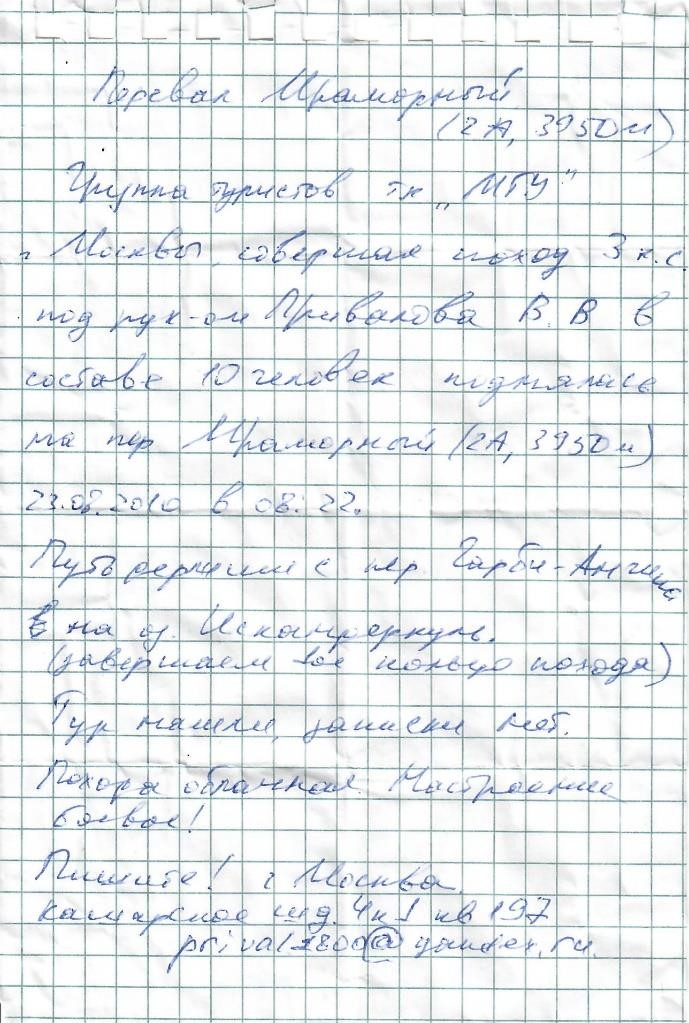 Перевал Мраморный
(2А, 3950м)
Группа туристов тк „МГУ"
г Москвы, совершая поход 3 к.с.
под рук-ом Привалова В. В в
составе 10 человек поднялась
на пер Мраморный (2А, 3950м)
23.08.2010 в 08:22.
Путь держим с пер. Гарби-
на оз. Искандеркуль.
(завершаем 1ое кольцо похода)
Тур нашли, записки нет.
Погода облачная. Настроение
боевое!
Пишите! г Москва.
шд. 4 к 1 кв 197
@yandex.ru.